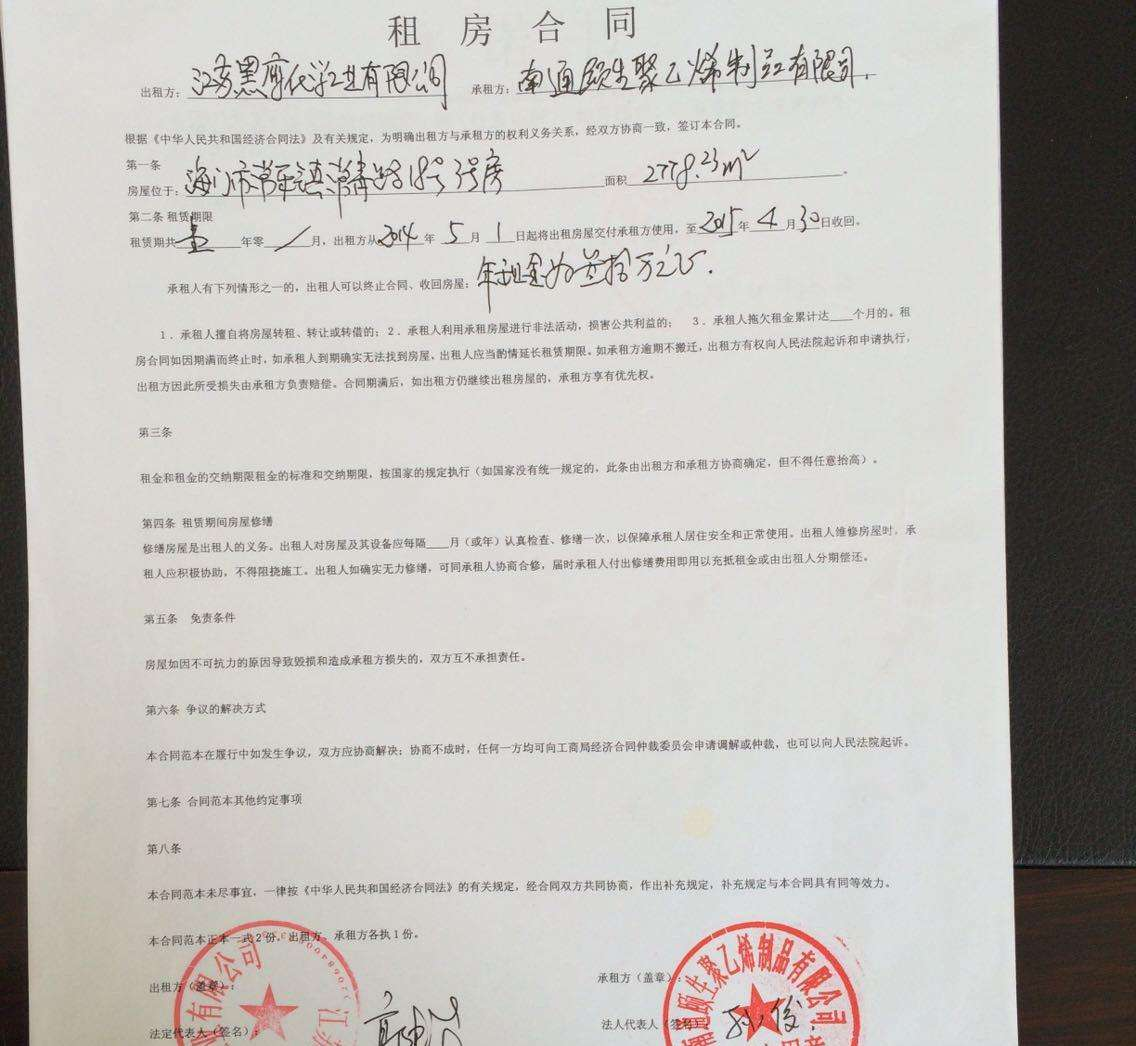 租房合同
出租方：江苏黑 化学工业有限公司 承租方：南通颐生聚乙烯制品有限公司.
根据《中华人民共和国经济合同法》及有关规定，为明确出租方与承租方的权利义务关系，经双方协商一致，签订本合同。
第一条
房屋位于：海门市常乐镇常青路18号3号房 面积 2778.23m²。
第二条 租赁期限
租赁期共壹年零／月，出租方从2014年5月1日起将出租房屋交付承租方使用，至2015年4月30日收回。
承租人有下列情形之一的，出租人可以终止合同、收回房屋：年租金为叁拾万元.
1．承租人擅自将房屋转租、转让或转借的；2．承租人利用承租房屋进行非法活动，损害公共利益的； 3．承租人拖欠租金累计达____个月的。租
房合同如因期满而终止时，如承租人到期确实无法找到房屋，出租人应当酌情延长租赁期限。如承租方逾期不搬迁，出租方有权向人民法院起诉和申请执行，
出租方因此所受损失由承租方负责赔偿。合同期满后，如出租方仍继续出租房屋的，承租方享有优先权。
第三条
租金和租金的交纳期限租金的标准和交纳期限，按国家的规定执行（如国家没有统一规定的，此条由出租方和承租方协商确定，但不得任意抬高）。
第四条 租赁期间房屋修缮
修缮房屋是出租人的义务。出租人对房屋及其设备应每隔____月（或年）认真检查、修缮一次，以保障承租人居住安全和正常使用。出租人维修房屋时，承
租人应积极协助，不得阻挠施工。出租人如确实无力修缮，可同承租人协商合修，届时承租人付出修缮费用即用以充抵租金或由出租人分期偿还。
第五条 免责条件
房屋如因不可抗力的原因导致毁损和造成承租方损失的，双方互不承担责任。
第六条 争议的解决方式
本合同范本在履行中如发生争议，双方应协商解决；协商不成时，任何一方均可向工商局经济合同仲裁委员会申请调解或仲裁，也可以向人民法院起诉。
第七条 合同范本其他约定事项
第八条
本合同范本未尽事宜，一律按《中华人民共和国经济合同法》的有关规定，经合同双方共同协商，作出补充规定，补充规定与本合同具有同等效力。
本合同范本正本一式2份，出租方、承租方各执1份。
出租方（盖章）： 承租方（盖章）：
法定代表人（签名）： 法人代表人（签名） 俊
业有限公司 江苏
南通颐生聚乙烯制品有限公司